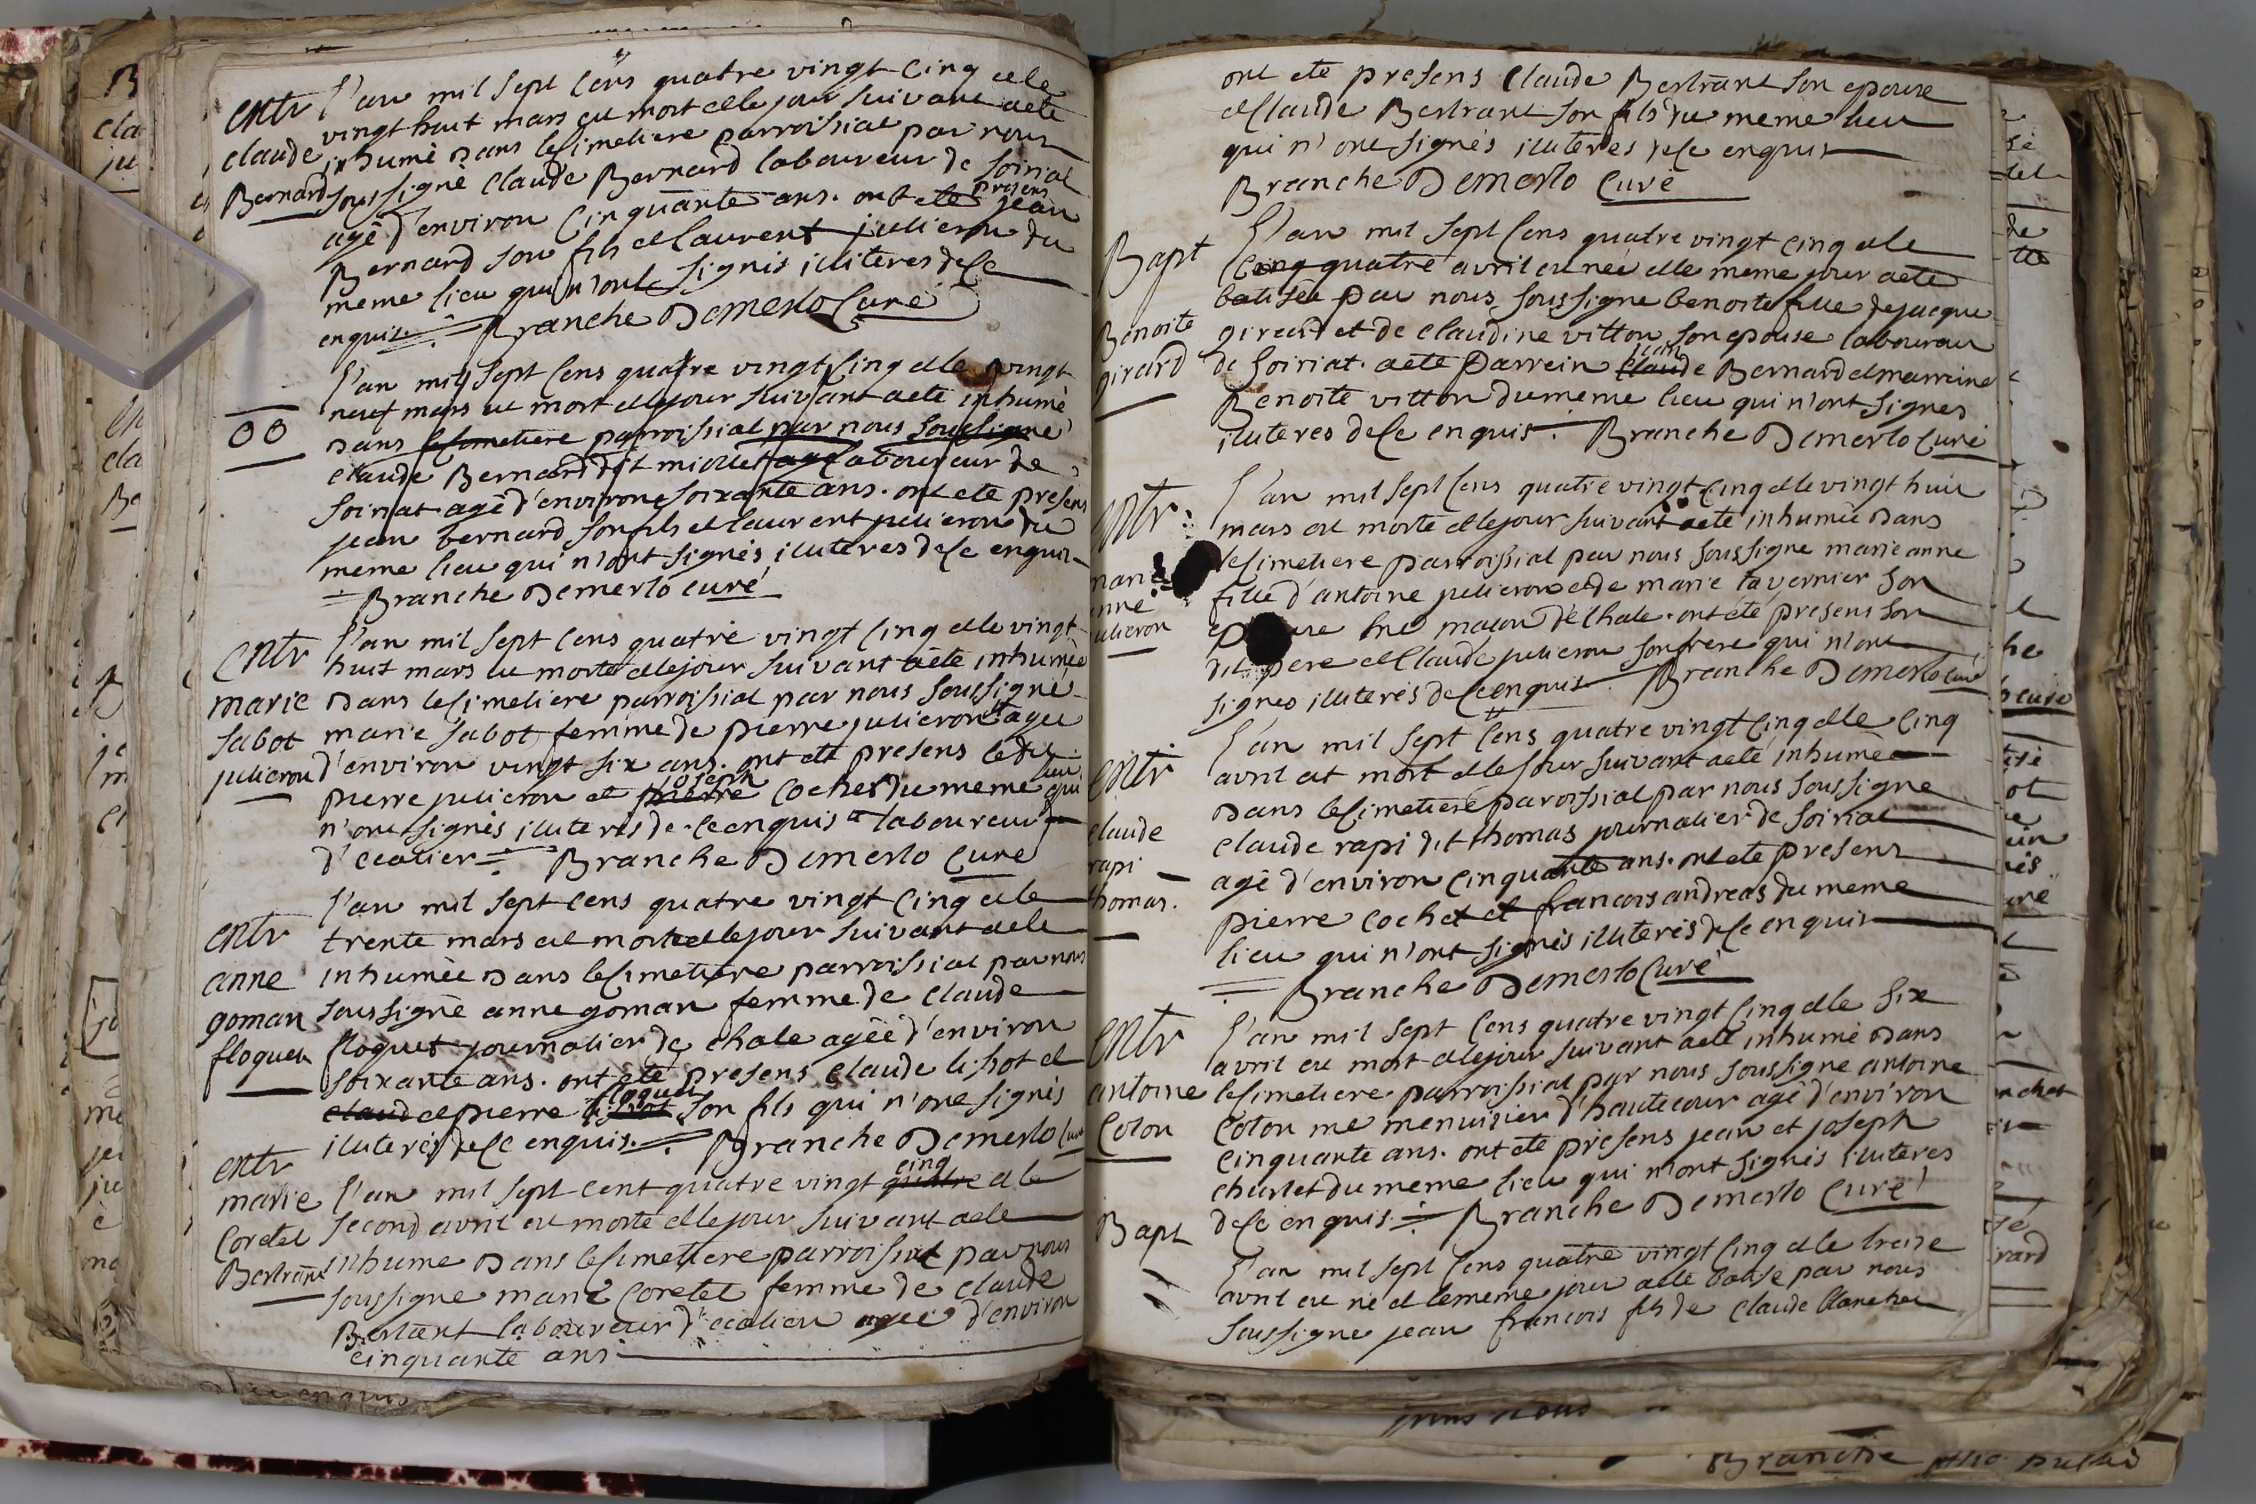 entr
claude
Bernard
l'an mil sept cens quatre vingt cinq et le
vingt huit mars est mort et le jour suivant a été
inhumé dans le simetiere parroissial par nous
soussigné claude Bernard laboureur de soiriat
agé d'environ cinquante ans. ont eté presens jean
Bernard son fils et laurent julieron du
meme lieu qui n'ont signés illiteres de ce
enquis. Branche Demerlo Curé
00
l'an mil sept cens quatre vingt cinq et le vingt
neuf mars est mort et le jour suivant a eté inhumé
dans le simetiere parroissial par nous soussigné
claude Bernard dit miollet agé laboureur de
soiriat agé d'environ soixante ans. ont eté presens
jean bernard son fils et laurent julieron du
meme lieu qui n'ont signés illiteres de ce enquis
Branche Demerlo curé
entr
marie
sabot
julieron
l'an mil sept cens quatre vingt cinq et le vingt
huit mars est morte et le jour suivant a eté inhumée
dans le simetiere parroissial par nous soussigné
marie sabot femme de pierre julieron agée
d'environ vingt six ans. ont eté presens le dit
pierre julieron et pierre joseph cochet du meme lieu qui
n'ont signés illiteres de ce enquis laboureur
d'ecolier Branche Demerlo Curé
entr
anne
goman
floquet
l'an mil sept cens quatre vingt cinq et le
trente mars est morte et le jour suivant a ete
inhumée dans le simetiere parroissial par nous
soussigné anne goman femme de claude
floquet journalier de chale agée d'environ
soixante ans. ont eté presens claude lisot et
claud et pierre lisot floquet son fils qui n'ont signés
illiterés de ce enquis. Branche Demerlo Curé
entr
marie
coretet
Bertrant
l'an mil sept cent quatre vingt quatre cinq et le
second avril est morte et le jour suivant a ete
inhume dans le simetiere parroissial par nous
soussigne marie coretet femme de claude
Bertrant laboureur d'ecolieu agée d'environ
cinquante ans
ont eté presens claude Bertrant son epoux
et claude Bertrant son fils du meme lieu
qui n'ont signés illiteres de ce enquis
Branche Demerlo Curé
Bapt
Benoite
girard
l'an mil sept cens quatre vingt cinq et le
cinq quatre avril est née et le meme jour a eté
batisée par nous soussigne benoite fille de jacque
girard et de claudine vitton son epouse laboureur
de soiriat. a eté parrein claude jean Bernard et marreine
Benoite vitton du meme lieu qui n'ont signes
illiteres de ce enquis. Branche Demerlo Curé
entr
anne
julieron
l'an mil sept cens quatre vingt cinq et le vingt huit
mars est morte et le jour suivant a eté inhumée dans
le simetiere parroissial par nous soussigne marie anne
fille d'antoine julieron et de marie tavernier son
me macon de chale. ont eté presens son
dit pere et claude julieron son frere qui n'ont
signes illiterés de ce enquis Branche Demerlo curé
entr
claude
rapi
thomas.
l'an mil sept cens quatre vingt cinq et le cinq
avril est mort et le jour suivant a eté inhumé
dans le simetiere paroissial par nous soussigne
claude rapi dit thomas journalier de soiriat
agé d'environ cinquante ans. ont eté presens
pierre cochet et francois andreas du meme
lieu qui n'ont signés illiterés de ce enquis
Branche Demerlo Curé
entr
antoine
colon
l'an mil sept cens quatre vingt cinq et le six
avril est mort et le jour suivant a eté inhumé dans
le simetiere parroissial par nous soussigne antoine
colon me menuisier d'hautecour agé d'environ
cinquante ans. ont eté presens jean et joseph
churlet du meme lieu qui n'ont signés illiteres
de ce enquis. Branche Demerlo Curé
Bapt
l'an mil sept cens quatre vingt cinq et le treize
avril est né et le meme jour a eté batisé par nous
soussigne jean francois fils de claude blanchet